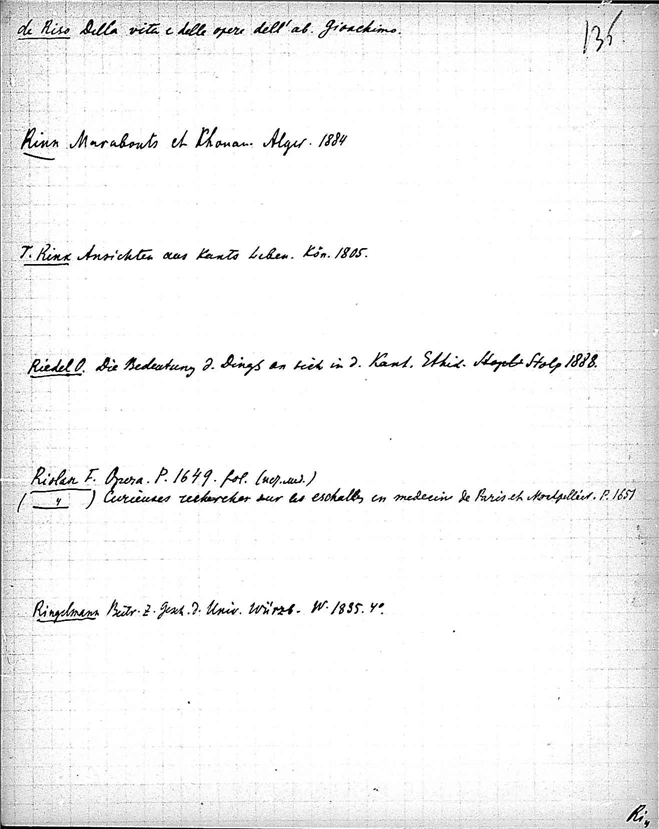 de Riso Della vita e delle opere dell' ab. Gioachimo.
135
Rinn Marabouts et Khouan. Alger. 1884
T. Rink Ansichten aus Kants Leben. Kön. 1805.
Riedel O. Die Bedeutung d. Dings an sich in d. Kant. Ethik. Stolp 1888.
Riolan F. Opera. P. 1649. fol.
( " ) Curieuses recherches sur les escholles en medecin de Paris et Montpellier. P. 1651
Ringelmann Beitr. z. Gesch. d. Univ. Würzb. W. 1835. 4°.
Ri